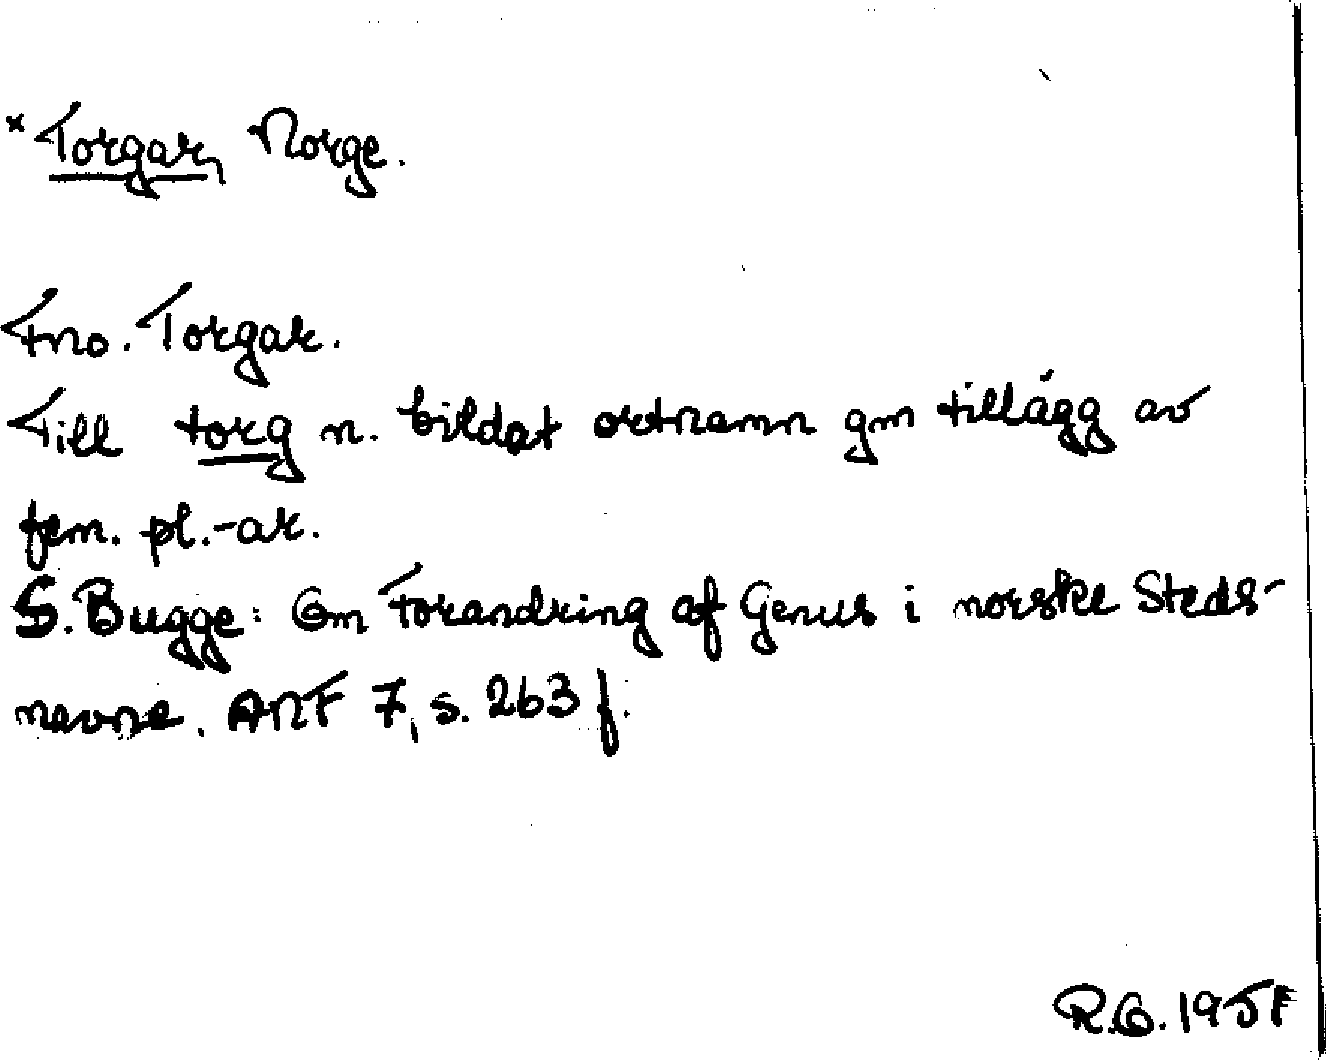 * Torgar, Norge.
Fno. Torgar.
Till torg n. bildat ortnamn gm tillägg av
fem. pl. -ar.
S. Bugge: Om Forandring af Genus i norske Steds-
navne. ANF 7, s. 263 f.